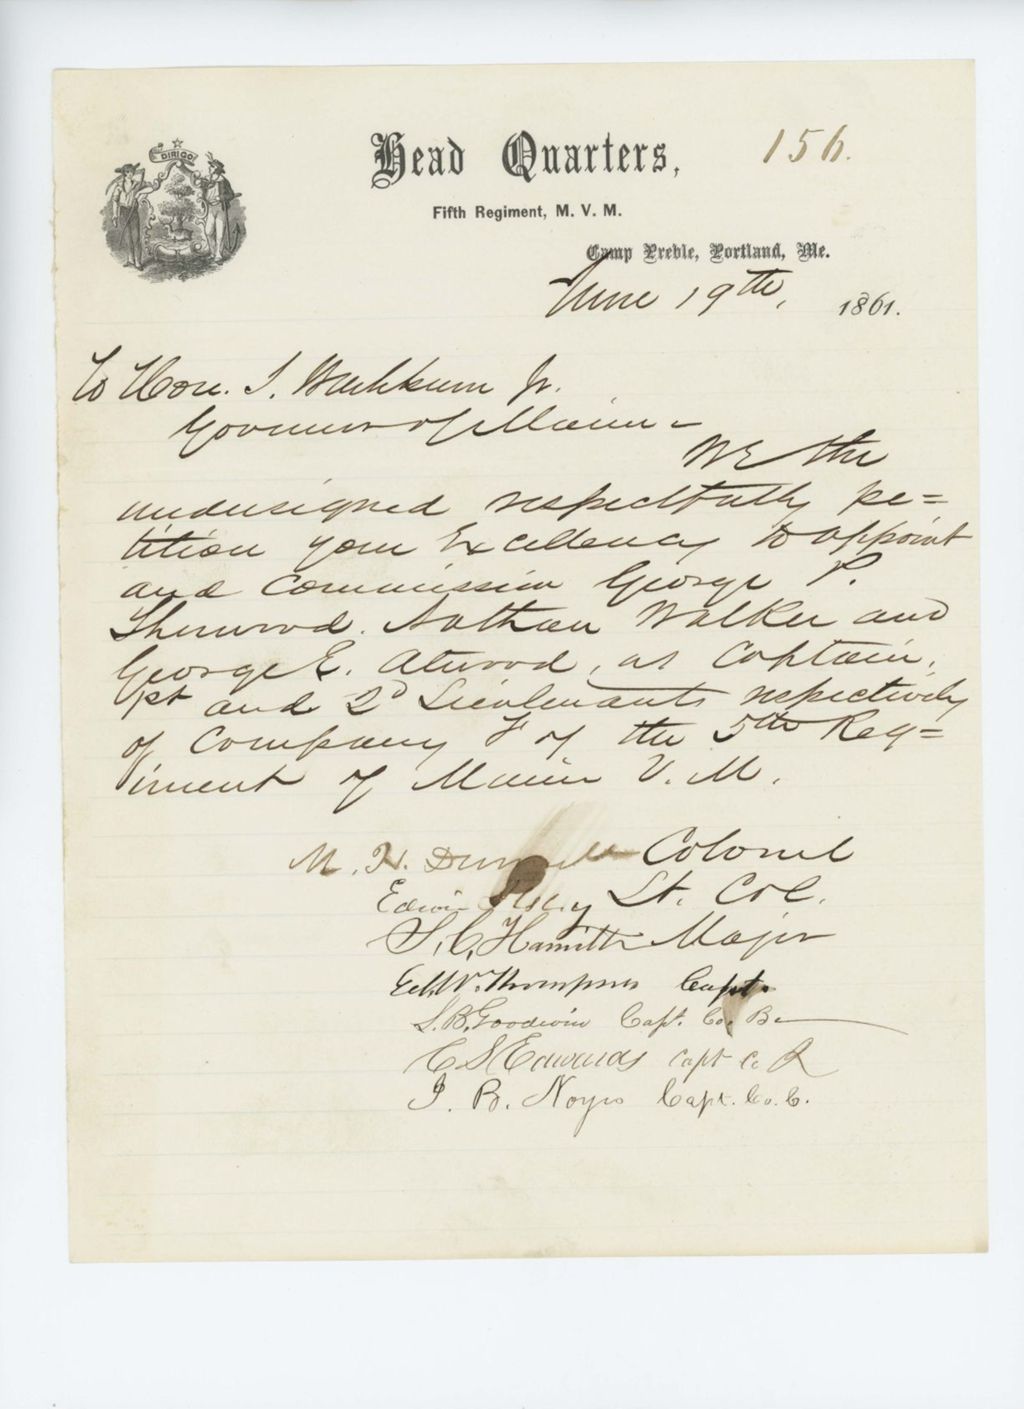 DIRIGO
Head Quarters,
156.
Fifth Regiment, M. V. M.
Camp Preble, Portland, Me.
June 19th, 1861.
To Hon. I. Washburn Jr.
Governor of Maine -
We the
undersigned respectfully pe=
tition your Excellency to appoint
and commission George P.
Sherwood. Nathan Walker and
George E. Atwood, as Captain,
1st and 2d Lieutenants respectively
of Company F of the 5th Reg=
iment of Maine V. M.
M. H. Dunnell Colonel
Edwin Illsley Lt. Col.
S. C. Hamilton Major
Ed. W. Thompson Capt.
S. B. Goodwin Capt. Co. B.
C S Edwards Capt Co
I. B. Noyes Capt. Co. C.